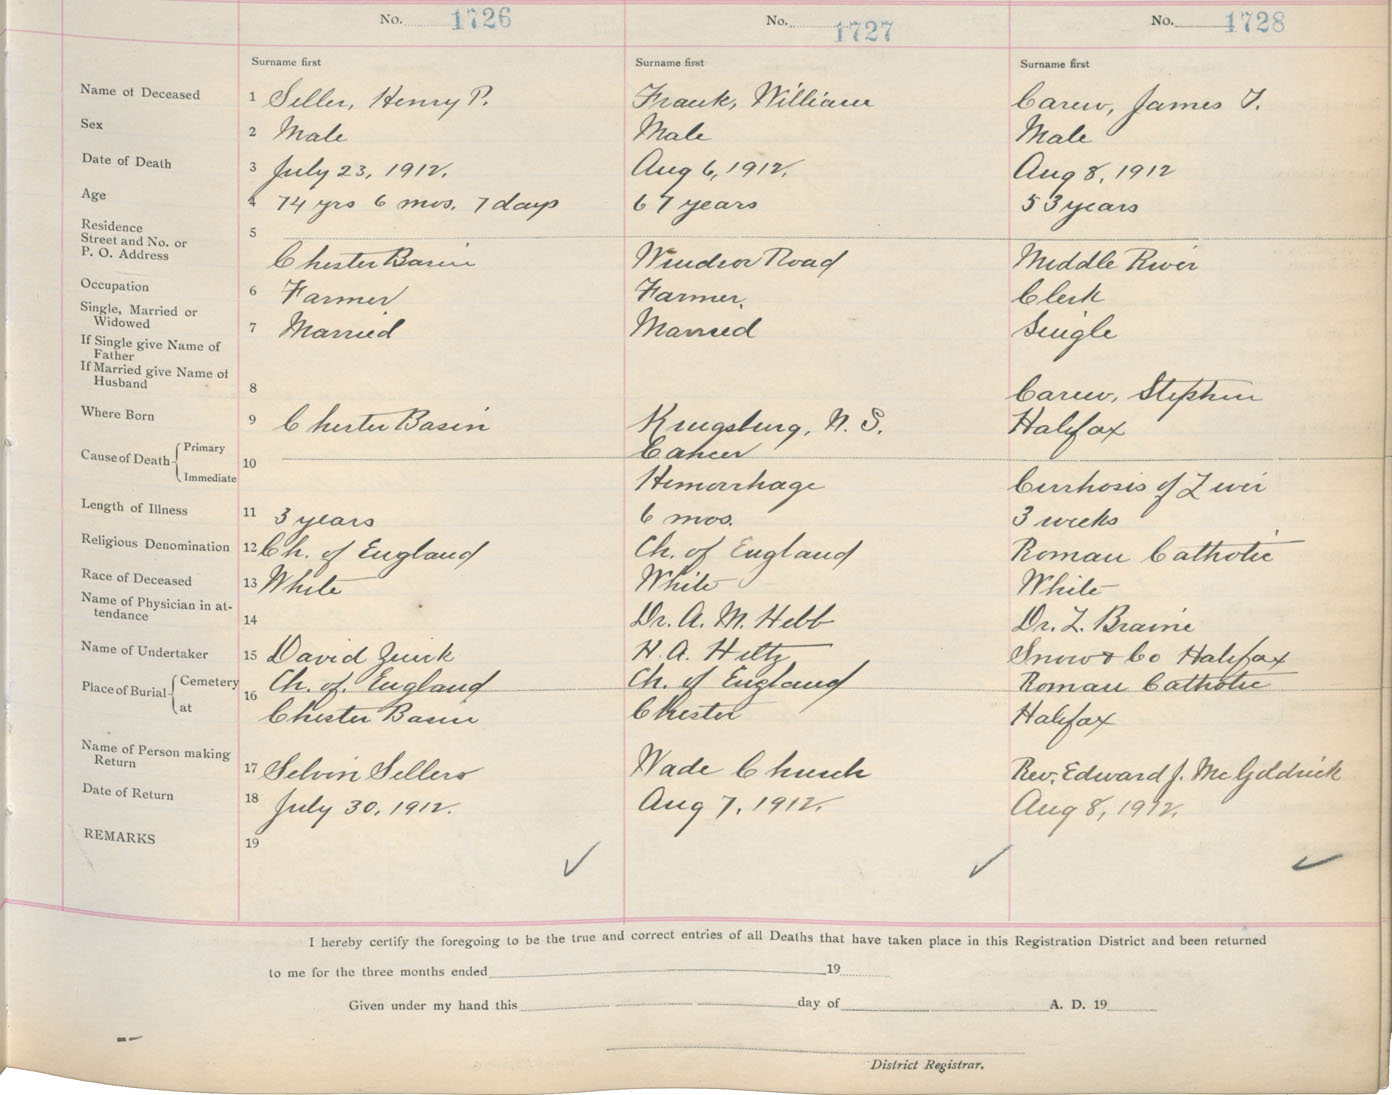 No. 1726 No. 1727 No. 1728
Surname first Surname first Surname first
Name of Deceased 1 Seller, Henry P. Frank, William Carew, James T.
Sex 2 Male Male Male
Date of Death 3 July 23, 1912. Aug 6, 1912. Aug 8, 1912
Age 4 74 yrs 6 mos. 7 days 67 years 53 years
Residence
Street and No. or
P. O. Address 5 Chester Basin Windsor Road Middle River
Occupation 6 Farmer Farmer. Clerk
Single, Married or
Widowed 7 Married Married Single
If Single give Name of
Father
If Married give Name of
Husband 8 Carew, Stephen
Where Born 9 Chester Basin Kingsburg, N. S. Halifax
Cause of Death Primary 10 Cancer
Immediate Hemorrhage Cirrhosis of Liver
Length of Illness 11 3 years 6 mos. 3 weeks
Religious Denomination 12 Ch. of England Ch. of England Roman Catholic
Race of Deceased 13 White White White
Name of Physician in at-
tendance 14 Dr. A. M. Hebb Dr. L. Braine
Name of Undertaker 15 David Zinck H. A. Hiltz Snow & Co Halifax
Place of Burial Cemetery 16 Ch. of England Ch. of England Roman Catholic
at Chester Basin Chester Halifax
Name of Person making
Return 17 Selvin Sellers Wade Church Rev. Edward J. McGoldrick
Date of Return 18 July 30, 1912. Aug 7, 1912. Aug 8, 1912.
REMARKS 19
I hereby certify the foregoing to be the true and correct entries of all Deaths that have taken place in this Registration District and been returned
to me for the three months ended 19
Given under my hand this day of A. D. 19
District Registrar.